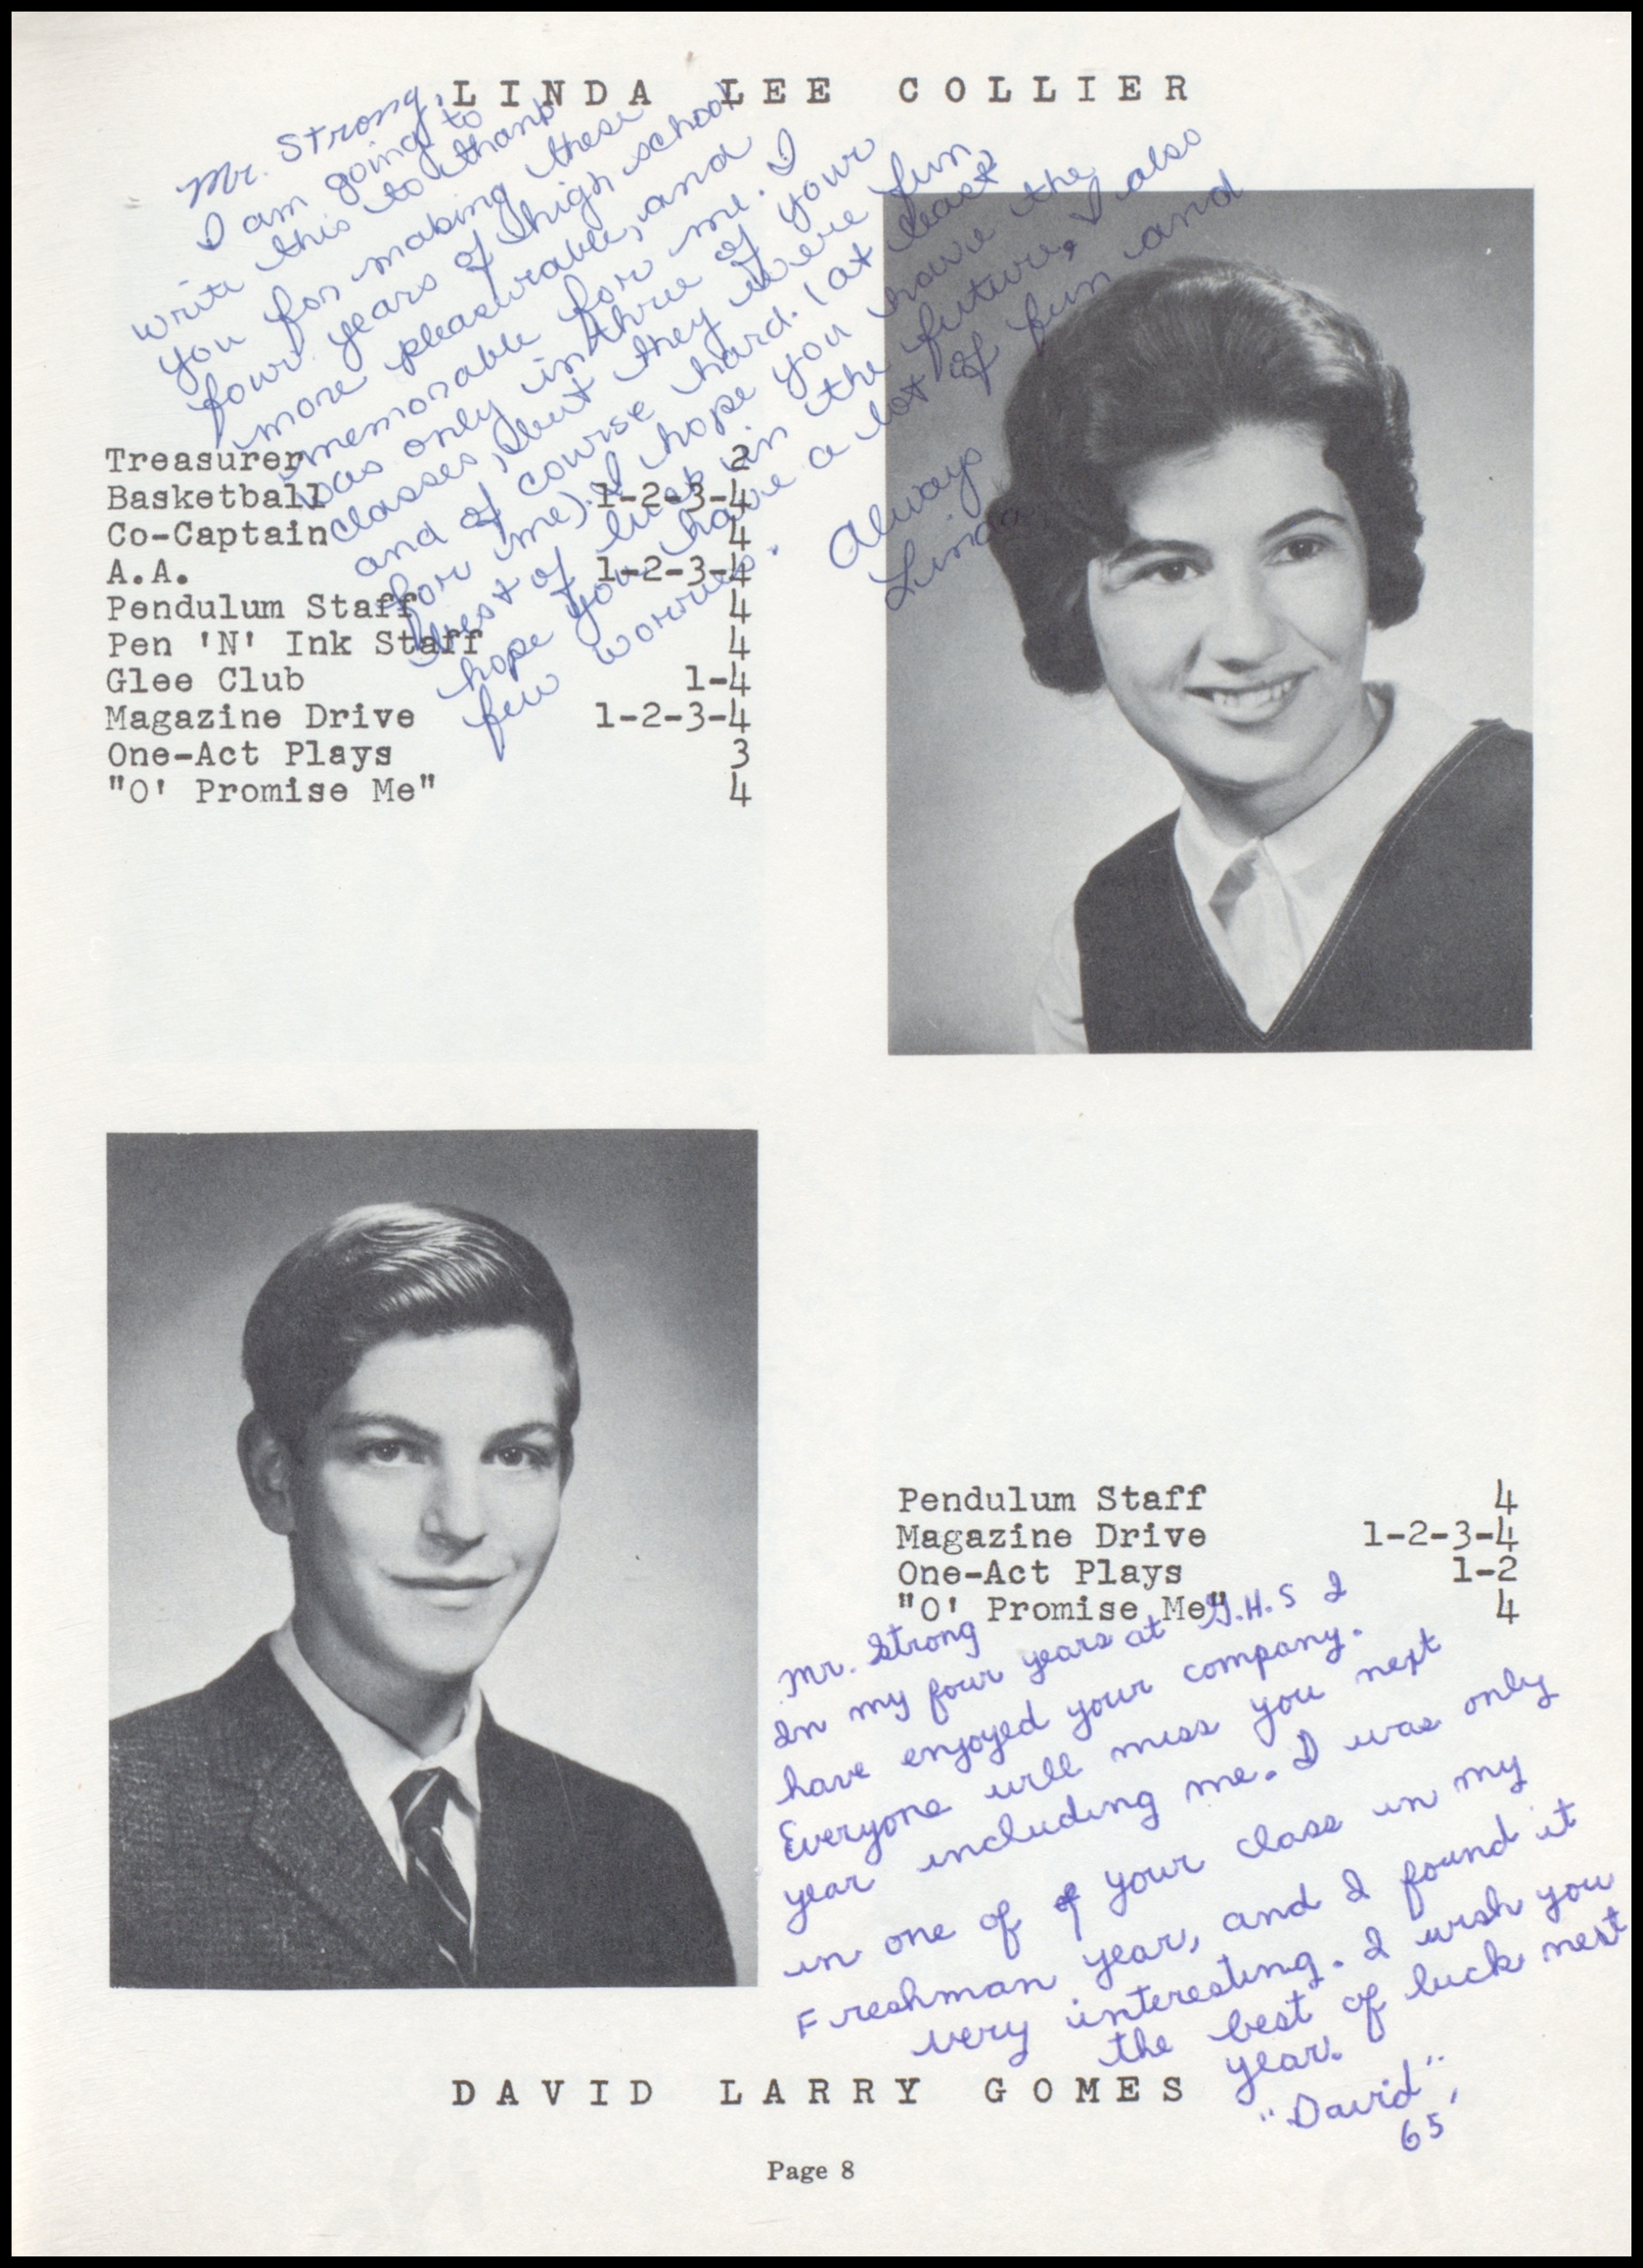 LINDA LEE COLLIER
Mr. Strong,
I am going to
write this to thank
you for making these
four years of high school
more pleasurable, and
memorable for me. I
was only in three of your
classes, but they were fun
and of course hard. (at least
for me). I hope you have the
best of luck in the future. I also
hope you have a lot of fun and
few worries.
Always
Linda
Treasurer 2
Basketball 1-2-3-4
Co-Captain 4
A.A. 1-2-3-4
Pendulum Staff 4
Pen 'N' Ink Staff 4
Glee Club 1-4
Magazine Drive 1-2-3-4
One-Act Plays 3
"O' Promise Me" 4
Pendulum Staff 4
Magazine Drive 1-2-3-4
One-Act Plays 1-2
"O' Promise Me" 4
Mr. Strong
In my four years at G.H.S I
have enjoyed your company.
Everyone will miss you next
year including me. I was only
in one of of your class in my
Freshman year, and I found it
very interesting. I wish you
the best of luck next
year.
"David"
65'
DAVID LARRY GOMES
Page 8